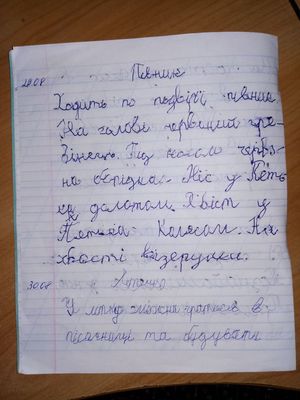 29.08
Півник
Ходить по подвірї півник.
На голові червоний гре-
бінець. Під носом черво-
на борідка. Ніс у Петь
ка долотом. Хвіст у
Петька колясом. На
хвості візерунки.
30.08
У можна гратися в
пісочниці та будувати